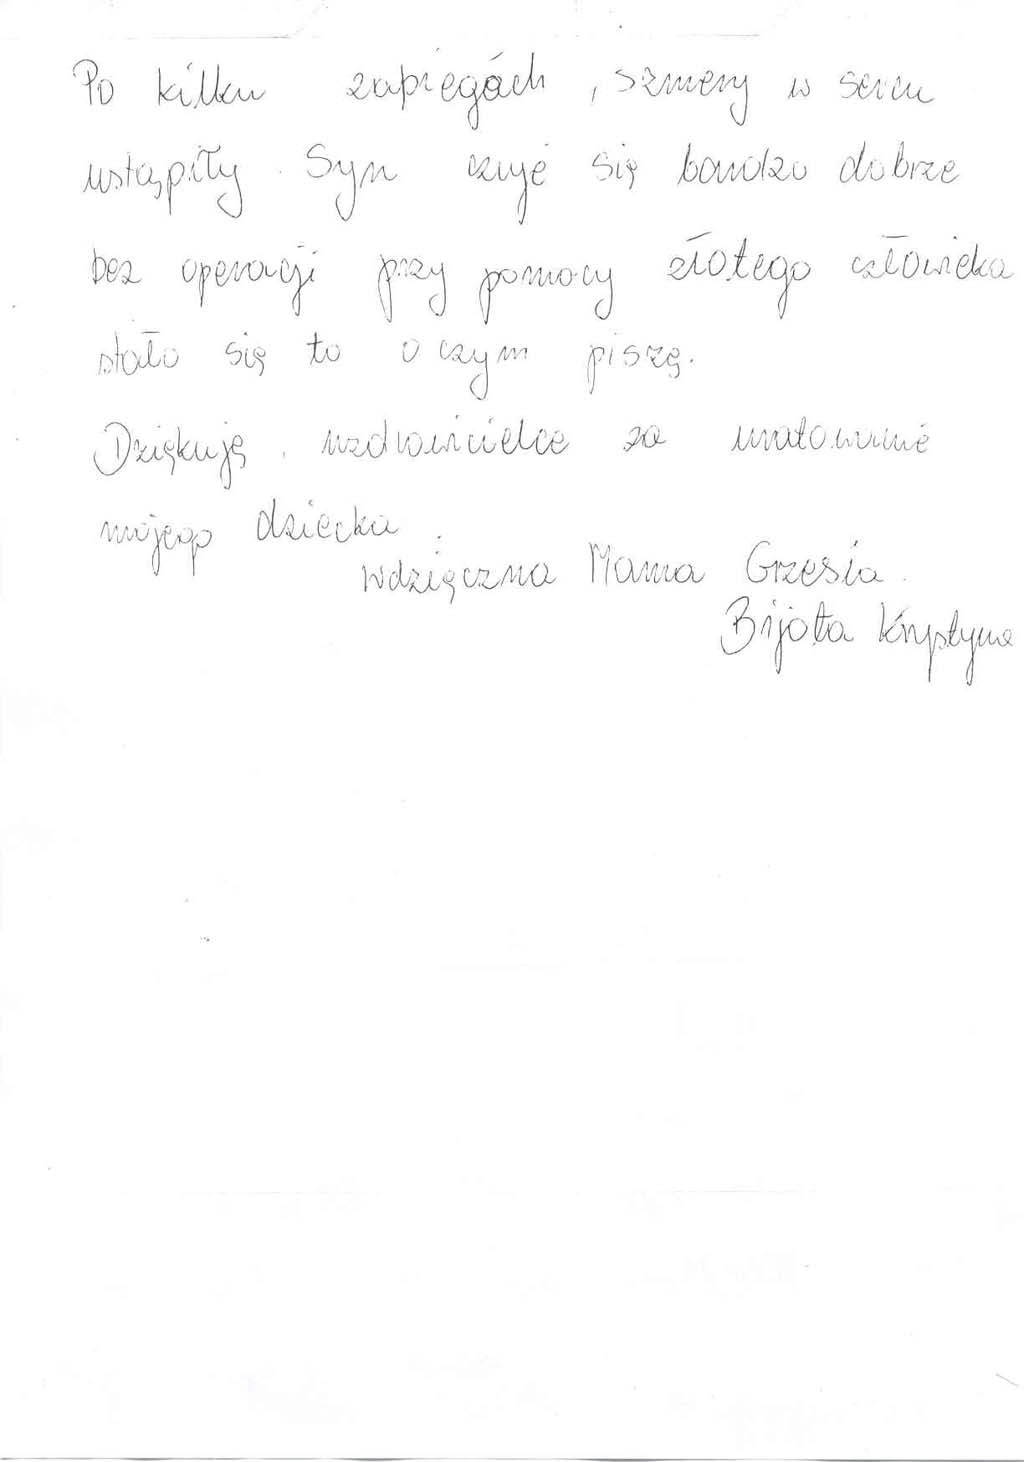 Po kilku zapiegách, szmery w sercu
ustąpiły. Syn czuje się bardzo dobrze
bez operacji przy pomocy złotego człowieka
stało się to o czym piszę.
Dziękuję, uzdrowicielce za uratowanie
mojego dziecka.
Wdzięczna Mama Grzesia.
Bijota Krystyna